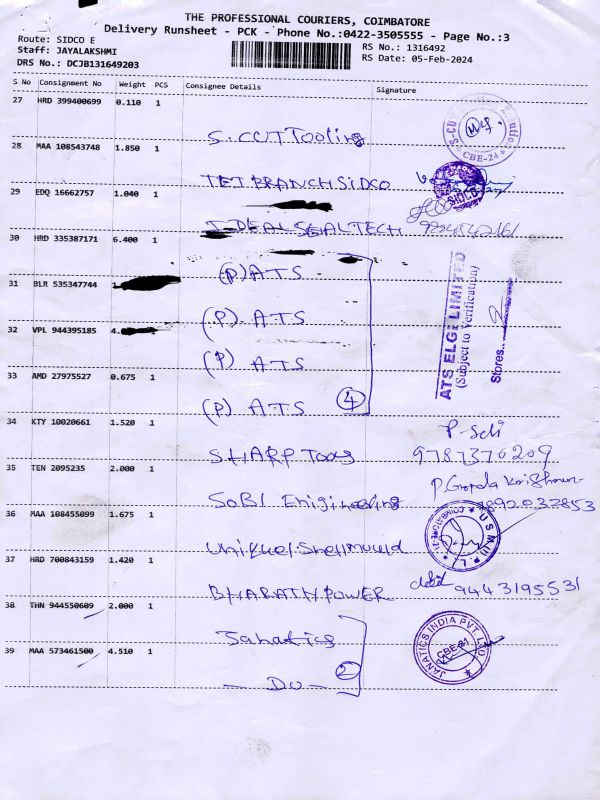 THE PROFESSIONAL COURIERS, COIMBATORE
Delivery Runsheet - PCK - Phone No.:0422-3505555 - Page No.:3
Route: SIDCO E
RS No.: 1316492
Staff: JAYALAKSHMI
RS Date: 05-Feb-2024
DRS No.: DCJB131649203
S No Consignment No Weight PCS Consignee Details Signature
27 HRD 399400699 0.110 1
S.CUT Tooling
CBE-24
28 MAA 108543748 1.850 1
TET BRANCH SIDCO
SIDCO
29 EDQ 16662757 1.040 1
I-DEAL SEAL TECH
30 HRD 335387171 6.400 1
(P) ATS
31 BLR 535347744
(P). ATS
ATS ELGI LIMITED
(Subject to Verification)
Stores..
32 VPL 944395185 4.
(P) ATS
33 AMD 27975527 0.675 1
(P) ATS
4
34 KTY 10020661 1.520 1
P-Seli
SHARP Tools 9787370209
35 TEN 2095235 2.000 1
P. Gopala Krishnan
SOBI Enigineering 9892032853
36 MAA 108455099 1.675 1
Uniquel Shellmould
U S M U P L
37 HRD 700843159 1.420 1
BHARATH POWER 9443195531
38 THN 944550609 2.000 1
Janatics
JANATICS INDIA PVT. LTD.
CBE-21
39 MAA 573461500 4.510 1
2
- Do -